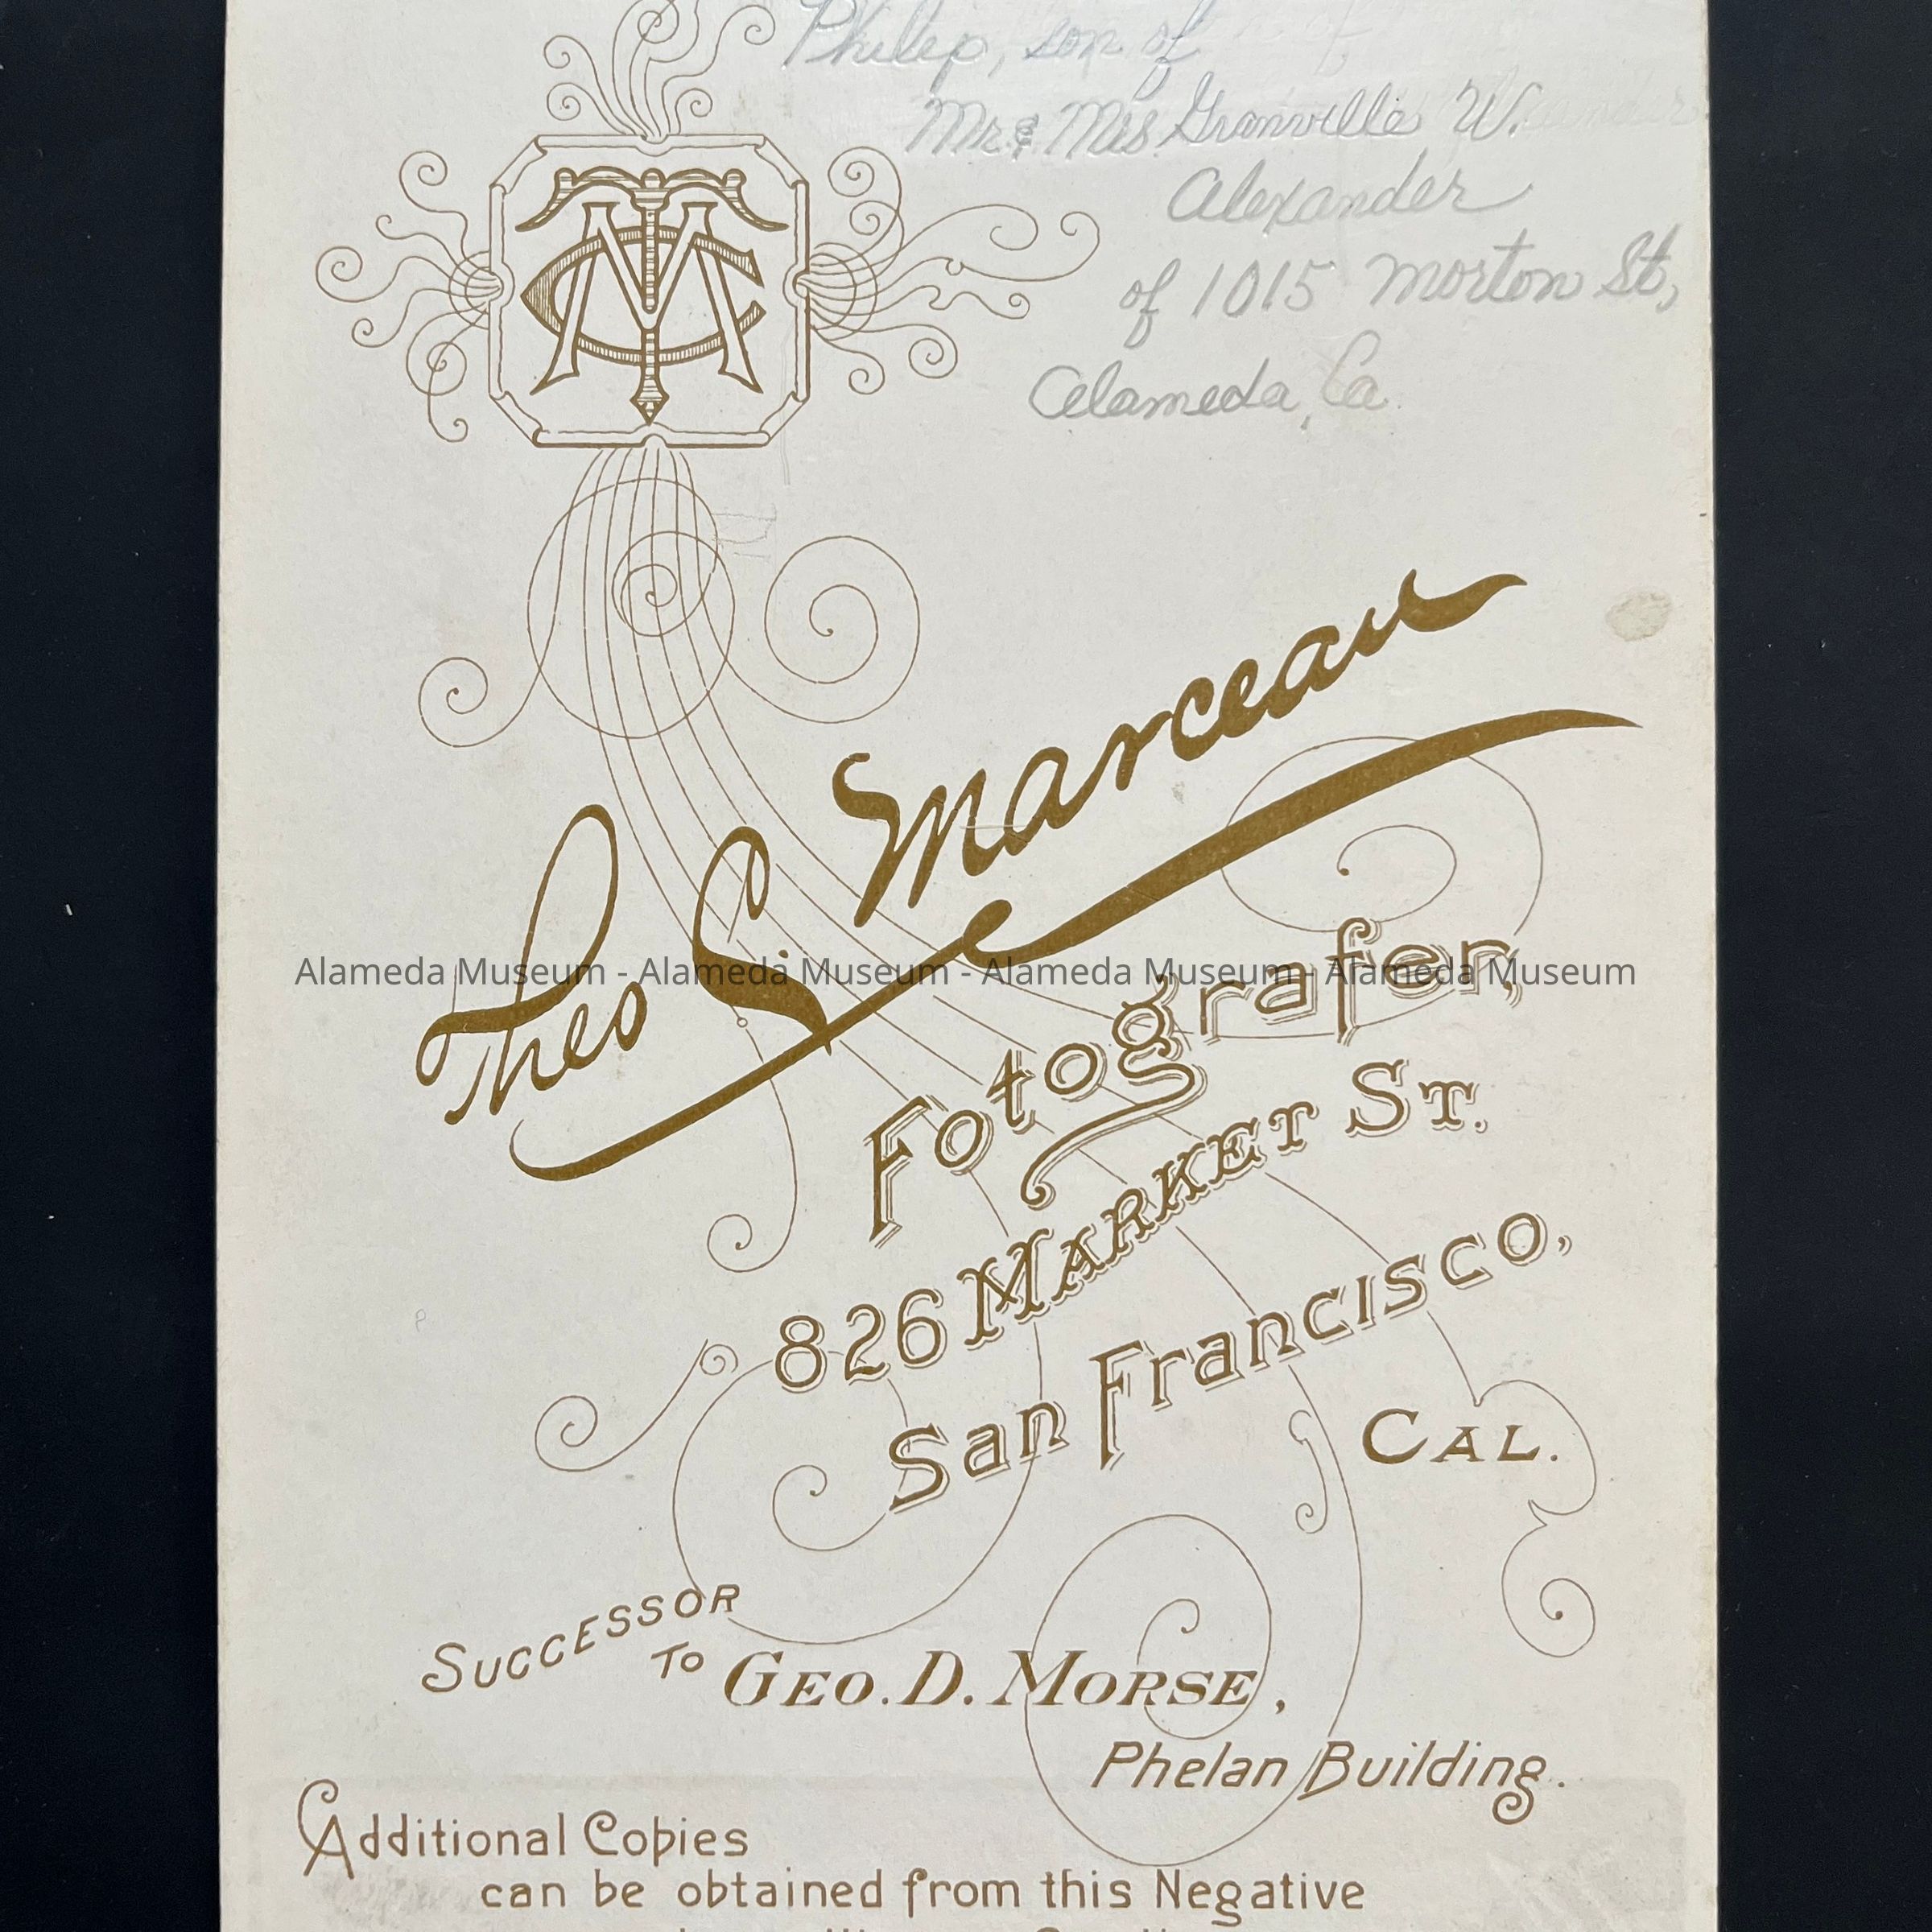 Philip, son of
Mr. & Mrs. Granville W.
Alexander
of 1015 Morton St,
Alameda, Ca.
TMC
Theo C Marceau
Fotografer,
826 Market St.
San Francisco,
Cal.
Alameda Museum - Alameda Museum - Alameda Museum - Alameda Museum
Successor
To Geo. D. Morse,
Phelan Building.
Additional Copies
can be obtained from this Negative